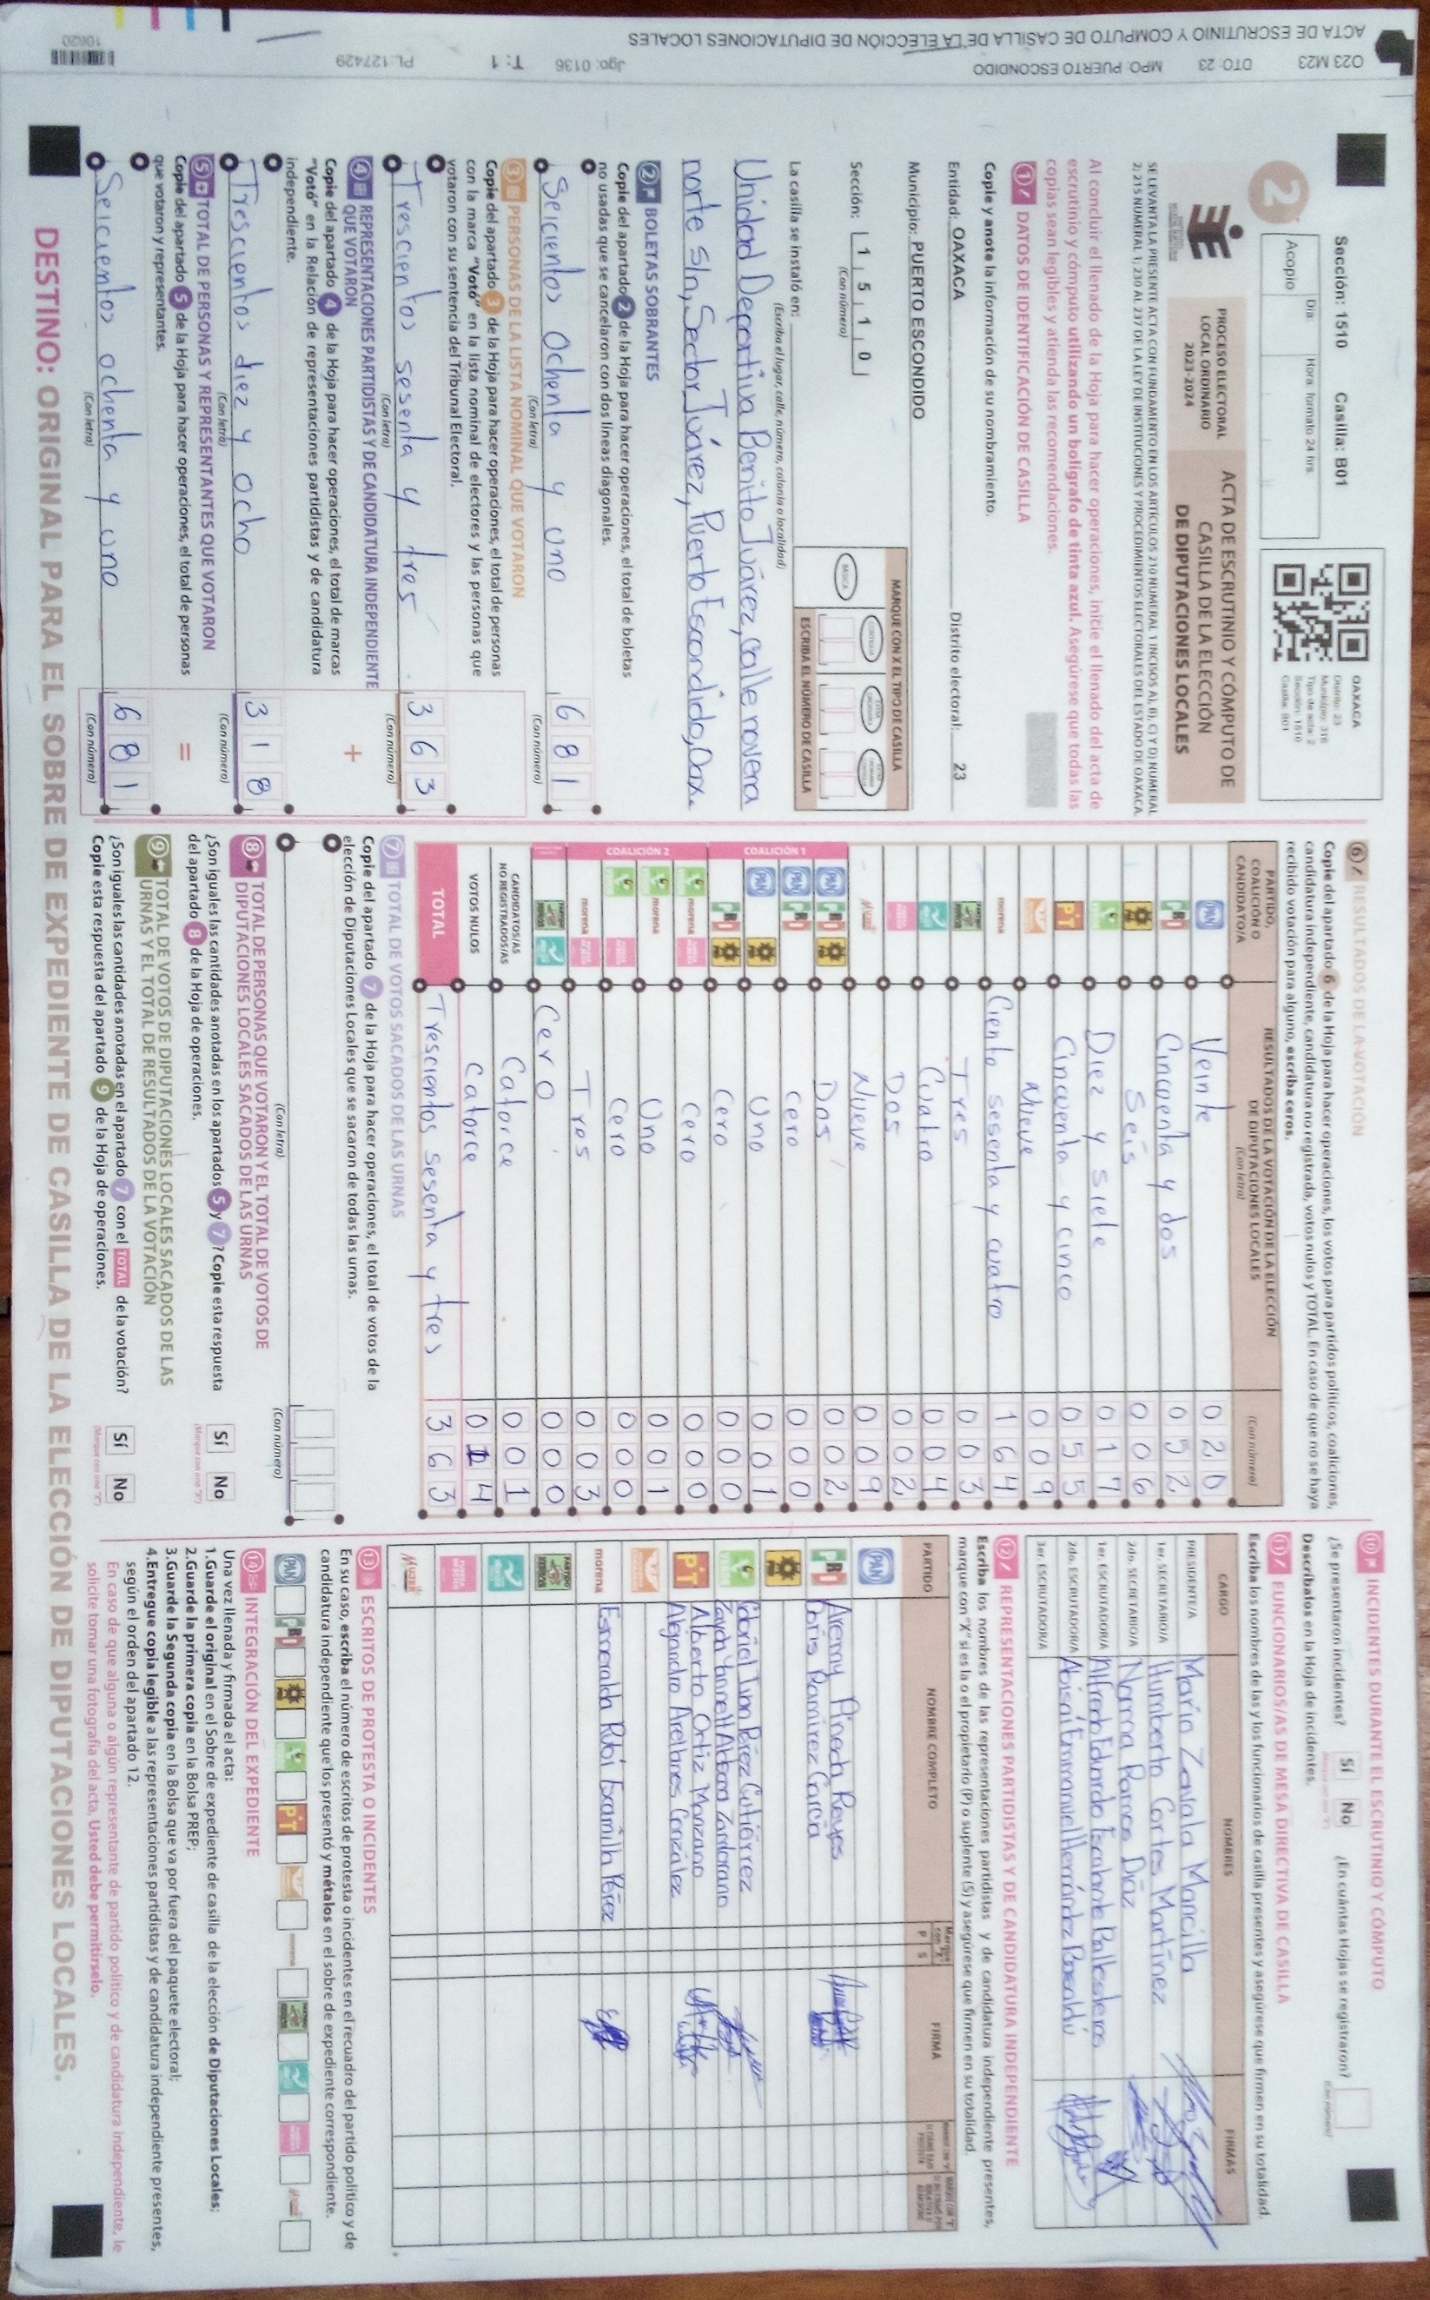 O23 M23
DTO: 23
MPO: PUERTO ESCONDIDO
Jgo: 0136
T: 1
PL: 127429
10620
ACTA DE ESCRUTINIO Y COMPUTO DE CASILLA DE LA ELECCIÓN DE DIPUTACIONES LOCALES
Sección: 1510 Casilla: B01
2
Acopio
Día:
Hora: formato 24 hrs.
OAXACA
Distrito: 23
Municipio: 318
Tipo de acta: 2
Sección: 1510
Casilla: B01
PROCESO ELECTORAL
LOCAL ORDINARIO
2023-2024
ACTA DE ESCRUTINIO Y CÓMPUTO DE
CASILLA DE LA ELECCIÓN
DE DIPUTACIONES LOCALES
SE LEVANTA LA PRESENTE ACTA CON FUNDAMENTO EN LOS ARTÍCULOS 210 NUMERAL 1 INCISOS A), B), C) Y D) NUMERAL
2; 215 NUMERAL 1; 230 AL 237 DE LA LEY DE INSTITUCIONES Y PROCEDIMIENTOS ELECTORALES DEL ESTADO DE OAXACA.
Al concluir el llenado de la Hoja para hacer operaciones, inicie el llenado del acta de
escrutinio y cómputo utilizando un bolígrafo de tinta azul. Asegúrese que todas las
copias sean legibles y atienda las recomendaciones.
1 DATOS DE IDENTIFICACIÓN DE CASILLA
Copie y anote la información de su nombramiento.
Entidad: OAXACA Distrito electoral: 23
Municipio: PUERTO ESCONDIDO
Sección: 1 5 1 0
(Con número)
MARQUE CON X EL TIPO DE CASILLA
BÁSICA
ESCRIBA EL NÚMERO DE CASILLA
La casilla se instaló en:
(Escriba el lugar, calle, número, colonia o localidad)
Unidad Deportiva Benito Juárez, calle novena
norte s/n, Sector Juárez, Puerto Escondido, Oax.
2 BOLETAS SOBRANTES
Copie del apartado 2 de la Hoja para hacer operaciones, el total de boletas
no usadas que se cancelaron con dos líneas diagonales.
Seicientos Ochenta y uno 681
(Con letra) (Con número)
3 PERSONAS DE LA LISTA NOMINAL QUE VOTARON
Copie del apartado 3 de la Hoja para hacer operaciones, el total de personas
con la marca "Votó" en la lista nominal de electores y las personas que
votaron con su sentencia del Tribunal Electoral.
Trescientos sesenta y tres 363
(Con letra) (Con número)
4 REPRESENTACIONES PARTIDISTAS Y DE CANDIDATURA INDEPENDIENTE
QUE VOTARON
+
Copie del apartado 4 de la Hoja para hacer operaciones, el total de marcas
"Votó" en la Relación de representaciones partidistas y de candidatura
independiente.
Trescientos diez y ocho 318
(Con letra) (Con número)
5 TOTAL DE PERSONAS Y REPRESENTANTES QUE VOTARON
=
Copie del apartado 5 de la Hoja para hacer operaciones, el total de personas
que votaron y representantes.
Seicientos ochenta y uno 681
(Con letra) (Con número)
6 RESULTADOS DE LA VOTACIÓN
Copie del apartado 6 de la Hoja para hacer operaciones, los votos para partidos políticos, coaliciones,
candidatura independiente, candidatura no registrada, votos nulos y TOTAL. En caso de que no se haya
recibido votación para alguno, escriba ceros.
PARTIDO,
COALICIÓN O
CANDIDATO/A
RESULTADOS DE LA VOTACIÓN DE LA ELECCIÓN
DE DIPUTACIONES LOCALES
(Con letra)
(Con número)
PAN Veinte 020
PRI Cincuenta y dos 052
PRD Seis 006
VERDE Diez y siete 017
PT Cincuenta y cinco 055
Nueve 009
morena Ciento sesenta y cuatro 164
Tres 003
Cuatro 004
Dos 002
Nueve 009
COALICIÓN 1
PAN PRI PRD Dos 002
PAN PRI cero 000
PAN PRD uno 001
PRI PRD Cero 000
COALICIÓN 2
VERDE morena Cero 000
VERDE morena Uno 001
VERDE cero 000
morena Tres 003
Cero 000
CANDIDATOS/AS
NO REGISTRADOS/AS Catorce 001
VOTOS NULOS Catorce 014
TOTAL Trescientos sesenta y tres 363
7 TOTAL DE VOTOS SACADOS DE LAS URNAS
Copie del apartado 7 de la Hoja para hacer operaciones, el total de votos de la
elección de Diputaciones Locales que se sacaron de todas las urnas.
(Con letra) (Con número)
8 TOTAL DE PERSONAS QUE VOTARON Y EL TOTAL DE VOTOS DE
DIPUTACIONES LOCALES SACADOS DE LAS URNAS
¿Son iguales las cantidades anotadas en los apartados 5 y 7? Copie esta respuesta
del apartado 8 de la Hoja de operaciones.
Sí No
(Marque con una "X")
9 TOTAL DE VOTOS DE DIPUTACIONES LOCALES SACADOS DE LAS
URNAS Y EL TOTAL DE RESULTADOS DE LA VOTACIÓN
¿Son iguales las cantidades anotadas en el apartado 7 con el TOTAL de la votación?
Copie esta respuesta del apartado 9 de la Hoja de operaciones.
Sí No
(Marque con una "X")
10 INCIDENTES DURANTE EL ESCRUTINIO Y CÓMPUTO
¿Se presentaron incidentes? Sí No ¿En cuántas Hojas se registraron?
(Marque con una "X") (Con número)
Descríbalos en la Hoja de incidentes.
11 FUNCIONARIOS/AS DE MESA DIRECTIVA DE CASILLA
Escriba los nombres de las y los funcionarios de casilla presentes y asegúrese que firmen en su totalidad.
CARGO NOMBRES FIRMAS
PRESIDENTE/A María Zavala Mancilla
1er. SECRETARIO/A Humberto Cortes Martínez
2do. SECRETARIO/A Norma Ramos Díaz
1er. ESCRUTADOR/A Alfredo Eduardo Escalante Ballesteros
2do. ESCRUTADOR/A Abisai Emmanuel Hernández Basaldú
3er. ESCRUTADOR/A
12 REPRESENTACIONES PARTIDISTAS Y DE CANDIDATURA INDEPENDIENTE
Escriba los nombres de las representaciones partidistas y de candidatura independiente presentes,
marque con "X" si es la o el propietario (P) o suplente (S) y asegúrese que firmen en su totalidad.
PARTIDO NOMBRE COMPLETO Marque con "X" P S FIRMA
PAN
PRI Aremy Pineda Reyes
Doris Ramirez Garcia
PRD
VERDE Gabriel Luna Pérez Gutiérrez
PT Alberto Ortiz Manzano
Alejandro Arellanes González
morena Esmeralda Rubí Escamilla Pérez
13 ESCRITOS DE PROTESTA O INCIDENTES
En su caso, escriba el número de escritos de protesta o incidentes en el recuadro del partido político y de
candidatura independiente que los presentó y métalos en el sobre de expediente correspondiente.
PAN PRI PRD VERDE PT morena
14 INTEGRACIÓN DEL EXPEDIENTE
Una vez llenada y firmada el acta:
1.Guarde el original en el Sobre de expediente de casilla de la elección de Diputaciones Locales;
2.Guarde la primera copia en la Bolsa PREP;
3.Guarde la Segunda copia en la Bolsa que va por fuera del paquete electoral;
4.Entregue copia legible a las representaciones partidistas y de candidatura independiente presentes,
según el orden del apartado 12.
En caso de que alguna o algún representante de partido político y de candidatura independiente, le
solicite tomar una fotografía del acta, Usted debe permitírselo.
DESTINO: ORIGINAL PARA EL SOBRE DE EXPEDIENTE DE CASILLA DE LA ELECCIÓN DE DIPUTACIONES LOCALES.